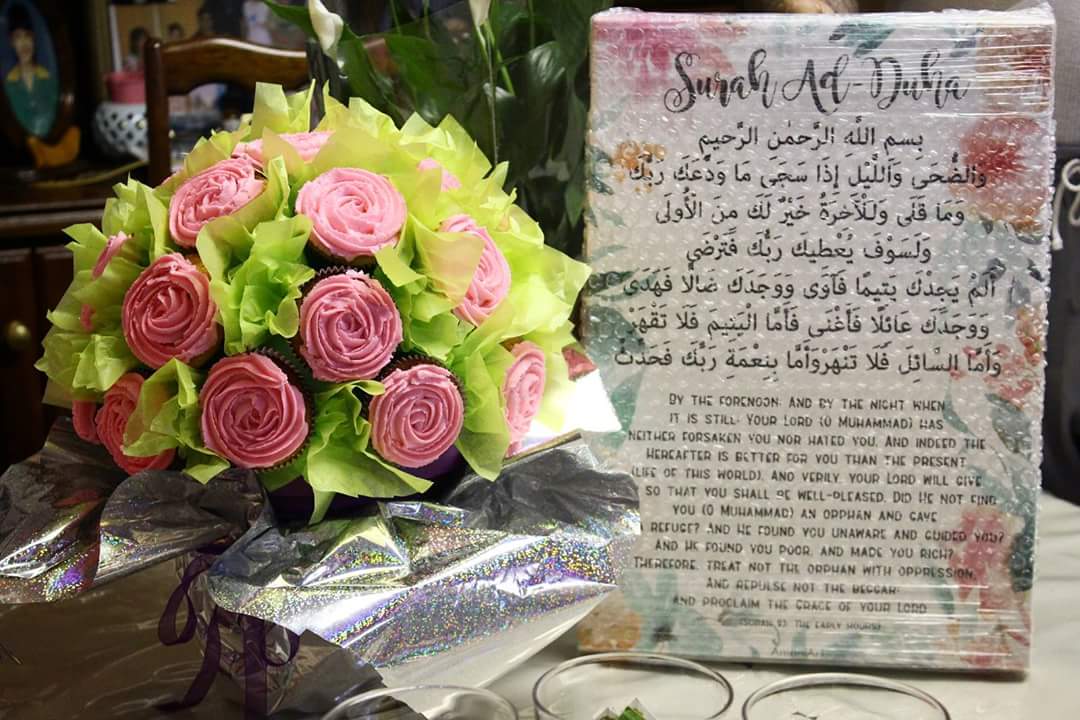 Surah Ad-Duha
بِسمِ اللَّهِ الرَّحمٰنِ الرَّحيمِ
وَالضُّحَى وَاللَّيْلِ إِذَا سَجَى مَا وَدَّعَكَ رَبُّكَ
وَمَا قَلَى وَلَلْآخِرَةُ خَيْرٌ لَكَ مِنَ الْأُولَى
وَلَسَوْفَ يُعْطِيكَ رَبُّكَ فَتَرْضَى
أَلَمْ يَجِدْكَ يَتِيمًا فَآوَى وَوَجَدَكَ ضَالًّا فَهَدَى
وَوَجَدَكَ عَائِلًا فَأَغْنَى فَأَمَّا الْيَتِيمَ فَلَا تَقْهَرْ
وَأَمَّا السَّائِلَ فَلَا تَنْهَرْوَأَمَّا بِنِعْمَةِ رَبِّكَ فَحَدِّثْ
BY THE FORENOON; AND BY THE NIGHT WHEN
IT IS STILL; YOUR LORD (O MUHAMMAD) HAS
NEITHER FORSAKEN YOU NOR HATED YOU. AND INDEED THE
HEREAFTER IS BETTER FOR YOU THAN THE PRESENT
(LIFE OF THIS WORLD). AND VERILY, YOUR LORD WILL GIVE
SO THAT YOU SHALL BE WELL-PLEASED. DID HE NOT FIND
YOU (O MUHAMMAD) AN ORPHAN AND GAVE
REFUGE? AND HE FOUND YOU UNAWARE AND GUIDED YOU?
AND HE FOUND YOU POOR, AND MADE YOU RICH?
THEREFORE, TREAT NOT THE ORPHAN WITH OPPRESSION,
AND REPULSE NOT THE BEGGAR;
AND PROCLAIM THE GRACE OF YOUR LORD
(SURAH 93: THE EARLY HOURS)